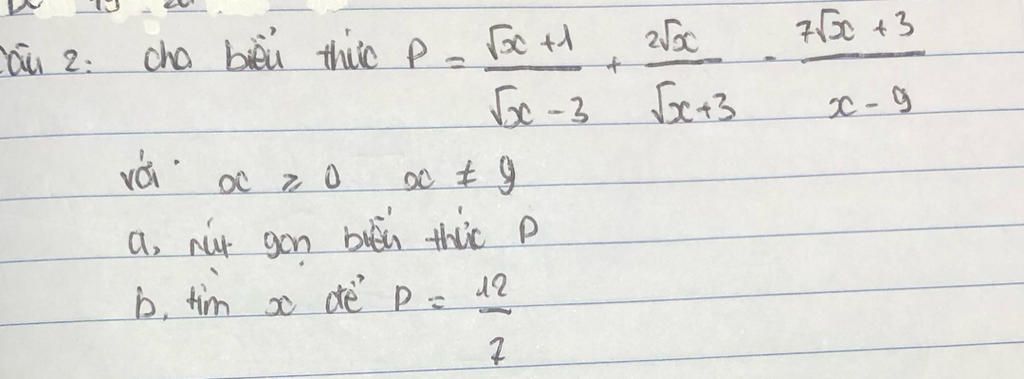 Câu 2: cho biểu thức P = \frac{\sqrt{x}+1}{\sqrt{x}-3} + \frac{2\sqrt{x}}{\sqrt{x}+3} - \frac{7\sqrt{x}+3}{x-9}
với x ≥ 0 x ≠ 9
a, rút gọn biểu thức P
b, tìm x để P = \frac{12}{7}